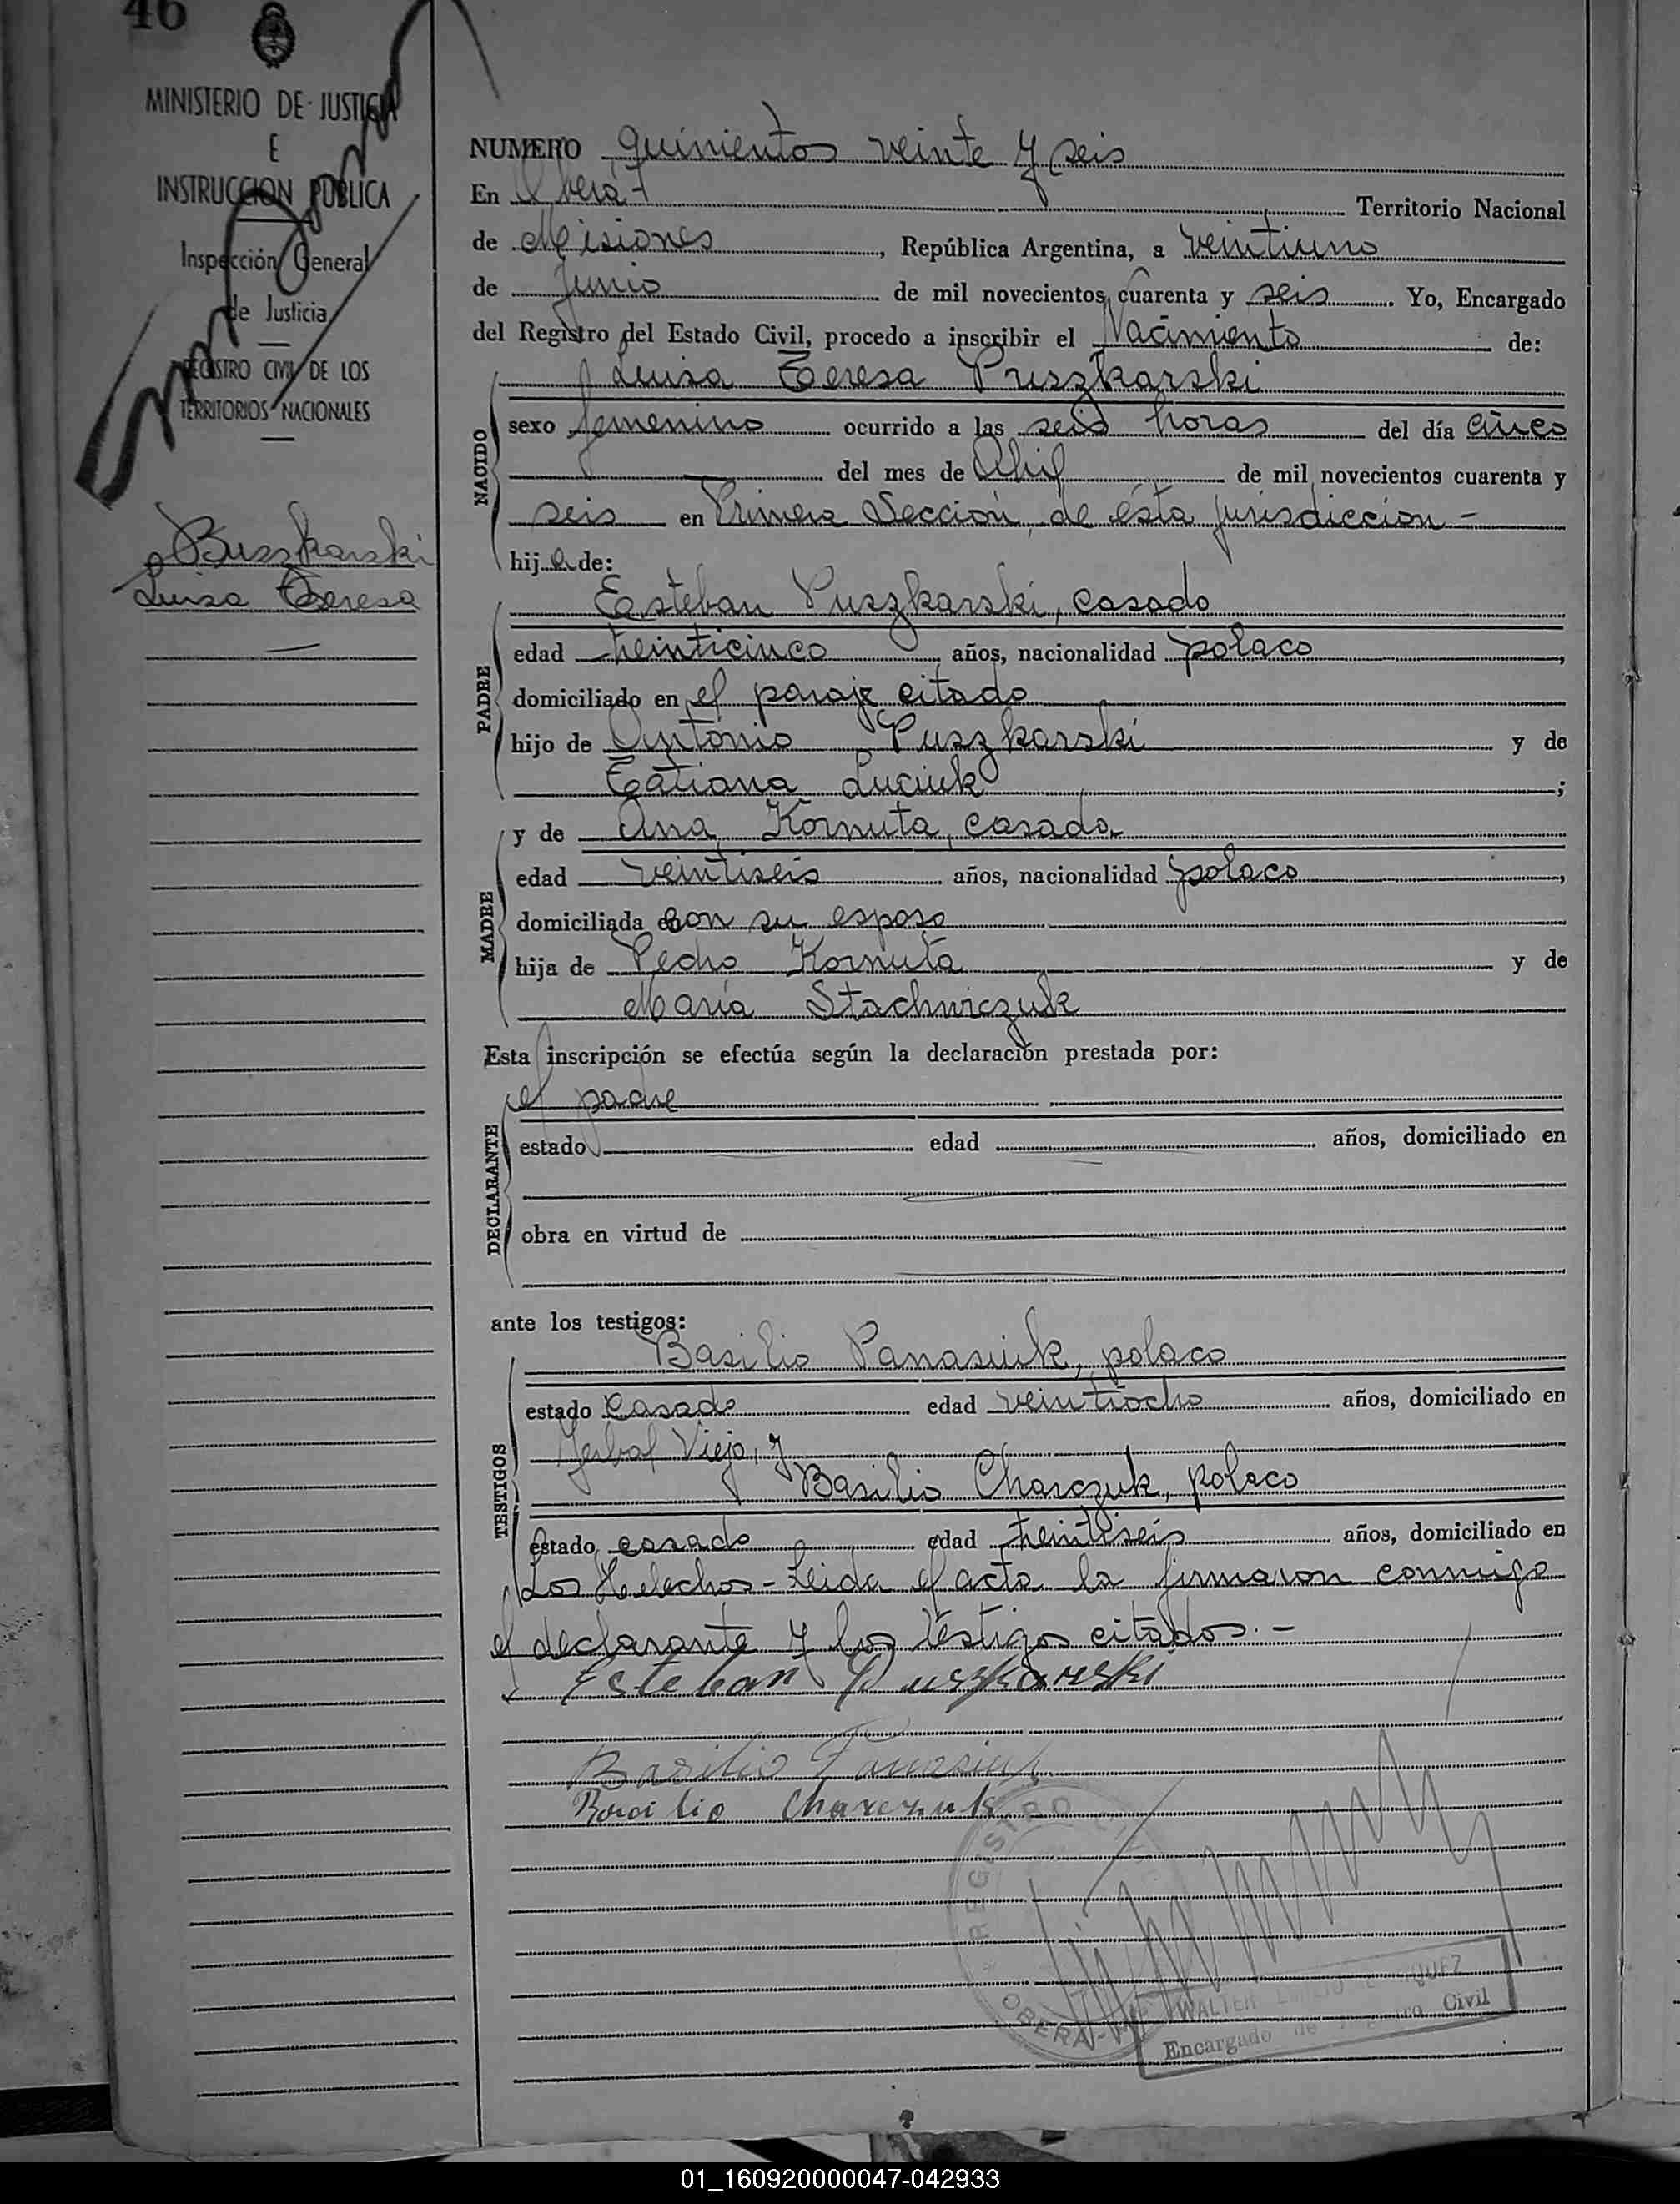 46
MINISTERIO DE JUSTICIA
E
INSTRUCCION PUBLICA
Inspección General
de Justicia
REGISTRO CIVIL DE LOS
TERRITORIOS NACIONALES
Puszkarski
Luisa Teresa
NUMERO quinientos veinte y seis
En Oberá- Territorio Nacional
de Misiones, República Argentina, a veintiuno
de junio de mil novecientos cuarenta y seis. Yo, Encargado
del Registro del Estado Civil, procedo a inscribir el Nacimiento de:
NACIDO
Luisa Teresa Puszkarski
sexo femenino ocurrido a las seis horas del día cinco
del mes de Abril de mil novecientos cuarenta y
seis en Primera Sección, de ésta jurisdicción -
hija de:
PADRE
Esteban Puszkarski, casado
edad treinticinco años, nacionalidad polaco,
domiciliado en el paraje citado
hijo de Antonio Puszkarski y de
Tatiana Luciuk;
MADRE
y de Ana Kornuta, casada
edad veintiseis años, nacionalidad polaco,
domiciliada con su esposo
hija de Pedro Kornuta y de
María Stachwiczuk
Esta inscripción se efectúa según la declaración prestada por:
DECLARANTE
el padre
estado edad años, domiciliado en
obra en virtud de
ante los testigos:
TESTIGOS
Basilio Panasiuk, polaco
estado casado edad veintiocho años, domiciliado en
Yerbal Viejo, y
Basilio Charczuk, polaco
estado casado edad treintiseis años, domiciliado en
Los Helechos - Leida el acta la firmaron conmigo
el declarante y los testigos citados. -
Esteban Puszkarski
Basilio Panasiuk
Basilio Charczuk
REGISTRO
OBERA
WALTER EMILIO
Encargado de Registro Civil
01_160920000047-042933